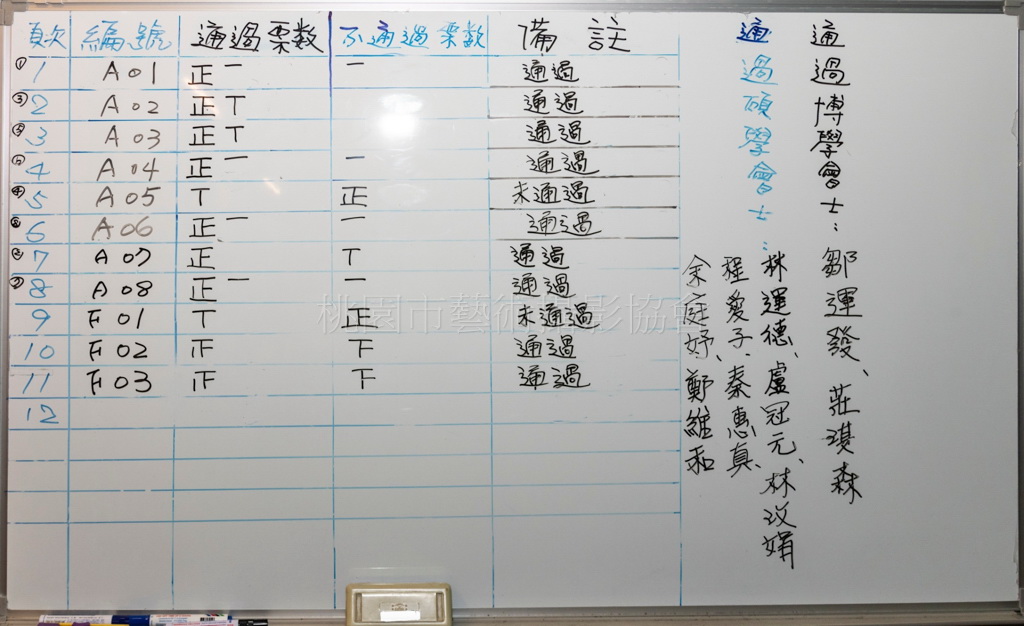 頁次 編號 通過票数 不通過票数 備註
① 1 A01 正一 一 通過
③ 2 A02 正T 通過
3 A03 正T 通過
4 A04 正一 一 通過
④ 5 A05 T 正 未通過
6 A06 正一 一 通過
7 A07 正 T 通過
⑦ 8 A08 正一 一 通過
9 F01 T 正 未通過
10 F02 正 下 通過
11 F03 正 下 通過
12
通過博學會士:鄒運發、莊淇森
通過碩學會士:林運德、盧冠元、林玫娟
程愛子、秦惠真、
余庭妤、鄭維和
桃園市藝術攝影協會